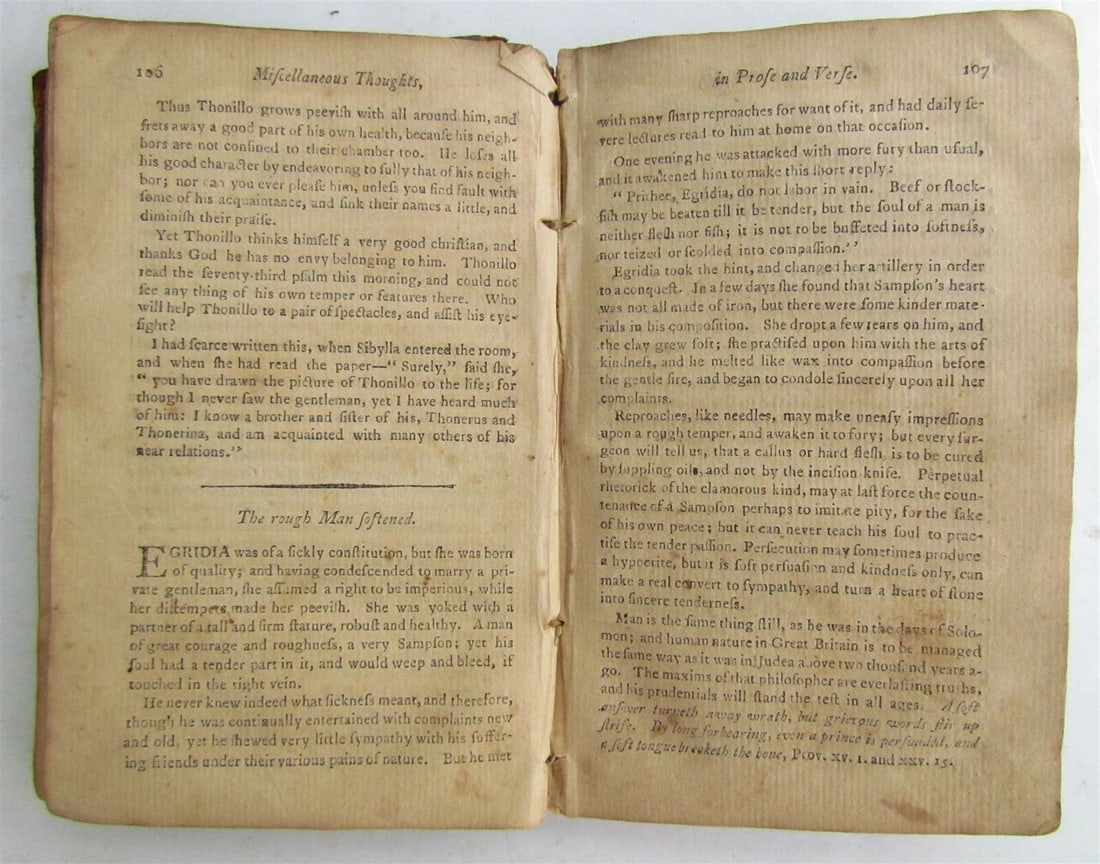 106 Miſcellaneous Thoughts,
Thus Thonillo grows peeviſh with all around him, and
frets away a good part of his own health, becauſe his neigh-
bors are not confined to their chamber too. He loſes all
his good character by endeavoring to ſully that of his neigh-
bor; nor can you ever pleaſe him, unleſs you find fault with
ſome of his acquaintance, and ſink their names a little, and
diminiſh their praiſe.
Yet Thonillo thinks himſelf a very good chriſtian, and
thanks God he has no envy belonging to him. Thonillo
read the ſeventy-third pſalm this morning, and could not
ſee any thing of his own temper or features there. Who
will help Thonillo to a pair of ſpectacles, and aſſiſt his eye-
ſight?
I had ſcarce written this, when Sibylla entered the room,
and when ſhe had read the paper—“ Surely,” ſaid ſhe,
“ you have drawn the picture of Thonillo to the life; for
though I never ſaw the gentleman, yet I have heard much
of him: I know a brother and ſiſter of his, Thonerus and
Thonerina, and am acquainted with many others of his
near relations.”
The rough Man ſoftened.
EGRIDIA was of a ſickly conſtitution, but ſhe was born
of quality; and having condeſcended to marry a pri-
vate gentleman, ſhe aſſumed a right to be imperious, while
her diſtempers made her peeviſh. She was yoked with a
partner of a tall and firm ſtature, robuſt and healthy. A man
of great courage and roughneſs, a very Sampſon; yet his
ſoul had a tender part in it, and would weep and bleed, if
touched in the right vein.
He never knew indeed what ſickneſs meant, and therefore,
though he was continually entertained with complaints new
and old, yet he ſhewed very little ſympathy with his ſuffer-
ing friends under their various pains of nature. But he met
in Proſe and Verſe. 107
with many ſharp reproaches for want of it, and had daily ſe-
vere lectures read to him at home on that occaſion.
One evening he was attacked with more fury than uſual,
and it awakened him to make this ſhort reply:
“ Prithee, Egridia, do not labor in vain. Beef or ſtock-
fiſh may be beaten till it be tender, but the ſoul of a man is
neither fleſh nor fiſh; it is not to be buffeted into ſoftneſs,
nor teized or ſcolded into compaſſion.”
Egridia took the hint, and changed her artillery in order
to a conqueſt. In a few days ſhe found that Sampſon's heart
was not all made of iron, but there were ſome kinder mate-
rials in his compoſition. She dropt a few tears on him, and
the clay grew ſoft; ſhe practiſed upon him with the arts of
kindneſs, and he melted like wax into compaſſion before
the gentle fire, and began to condole ſincerely upon all her
complaints.
Reproaches, like needles, may make uneaſy impreſſions
upon a rough temper, and awaken it to fury; but every ſur-
geon will tell us, that a callus or hard fleſh is to be cured
by ſuppling oils, and not by the inciſion knife. Perpetual
rhetorick of the clamorous kind, may at laſt force the coun-
tenance of a Sampſon perhaps to imitate pity, for the ſake
of his own peace; but it can never teach his ſoul to prac-
tiſe the tender paſſion. Perſecution may ſometimes produce
a hypocrite, but it is ſoft perſuaſion and kindneſs only, can
make a real convert to ſympathy, and turn a heart of ſtone
into ſincere tenderneſs.
Man is the ſame thing ſtill, as he was in the days of Solo-
mon; and human nature in Great Britain is to be managed
the ſame way as it was in Judea above two thouſand years a-
go. The maxims of that philoſopher are everlaſting truths,
and his prudentials will ſtand the teſt in all ages. A ſoft
anſwer turneth away wrath, but grievous words ſtir up
ſtrife. By long forbearing, even a prince is perſuaded, and
a ſoft tongue breaketh the bone, Prov. xv. 1. and xxv. 15.